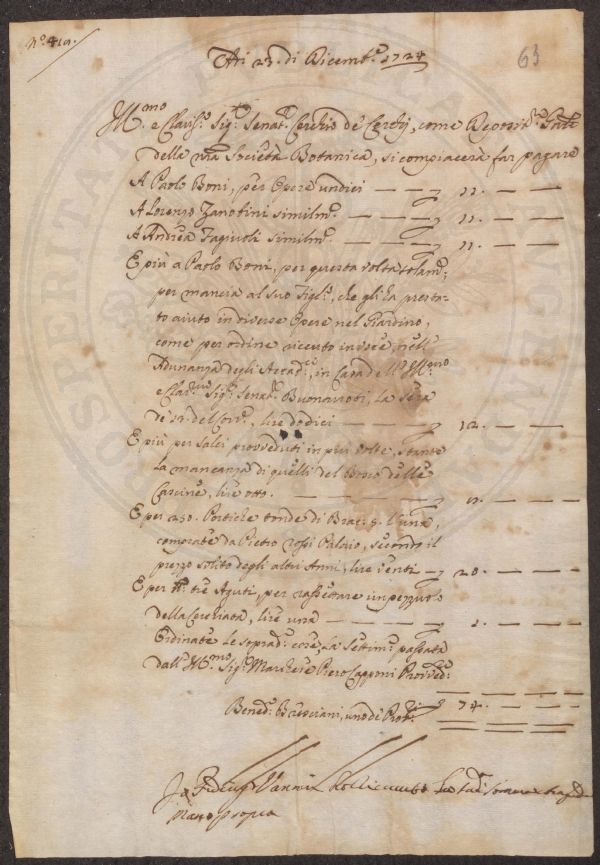 N.o 419.
63
Addi 23. di Dicemb.e 1724
Ill.mo e Clariss.o Sig.r Senat.r Cerchio de Cerchj, come Deposit.rio Gen.le
della nra Società Botanica, si compiacerà far pagare
A Paolo Boni, per Opere undici 11.
A Lorenzo Zanobini similm.e 11.
A Andrea Fagiuoli similm.e 11.
E più a Paolo Boni, per questa volta solam.e,
per mancia al suo Figl.o, che gli ha presta-
to aiuto in diverse Opere nel Giardino,
come per ordine ricevuto in voce, nell'
Adunanza degli Accad.ci, in Casa dell'Ill.mo
e Clar.mo Sig.r Senat.r Buonarroti, la sera
de' del Corr.e, lire dodici 12.
E più per Salci provveduti in più volte, stante
la mancanza di quelli del Bosco delle
Cascine, lire otto. 8.
E per 250. Pertiche tonde di Braccia 5. l'una,
comprate da Pietro Rossi Palaio, secondo il
prezzo solito degli altri Anni, lire venti 20.
E per tre Aguti, per rassettare un pezzuolo
della Cerchiata, lire una 1.
Ordinate le soprad.e cose, la Settim.a passata
dall'Ill.mo Sig.r Marchese Piero Capponi Provved.e
74.
Bened.o Bresciani, uno de' Prov.
Io Vannini
mano propria